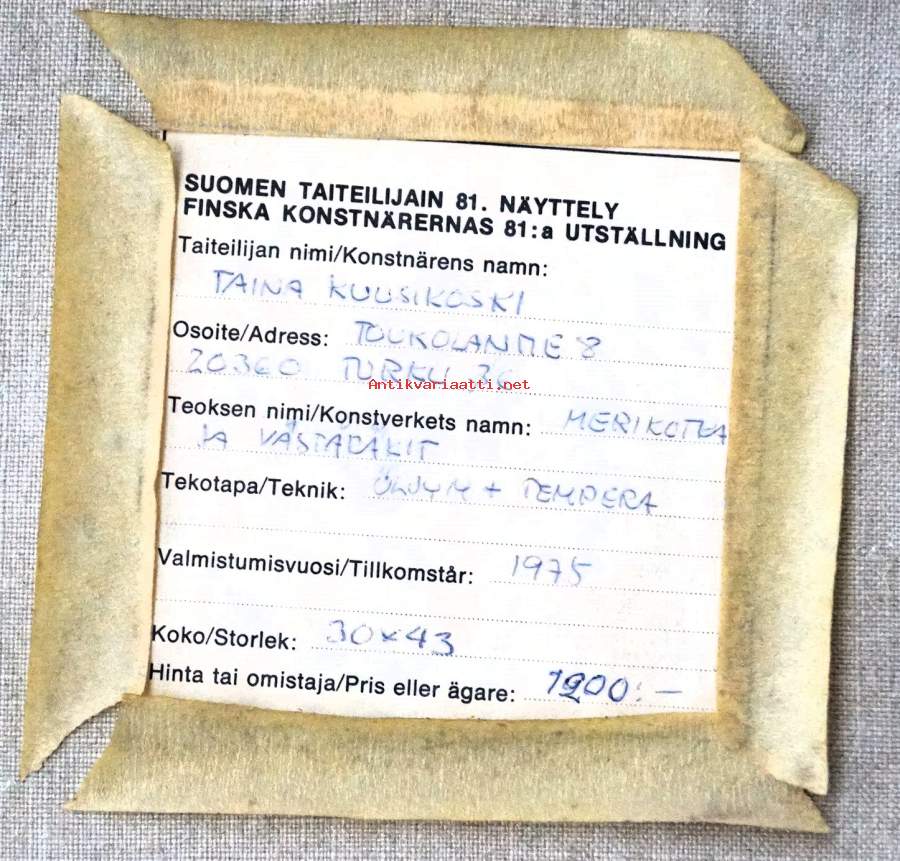 SUOMEN TAITEILIJAIN 81. NÄYTTELY
FINSKA KONSTNÄRERNAS 81:a UTSTÄLLNING
Taiteilijan nimi/Konstnärens namn:
TAINA KUUSIKOSKI
Osoite/Adress: TOUKOLANTIE 8
20360 TURKU 36
Antikvariaatti.net
Teoksen nimi/Konstverkets namn: MERIKOTKA
JA VÄSTÄRÄKIT
Tekotapa/Teknik: ÖLJY + TEMPERA
Valmistumisvuosi/Tillkomstår: 1975
Koko/Storlek: 30x43
Hinta tai omistaja/Pris eller ägare: 1200:-